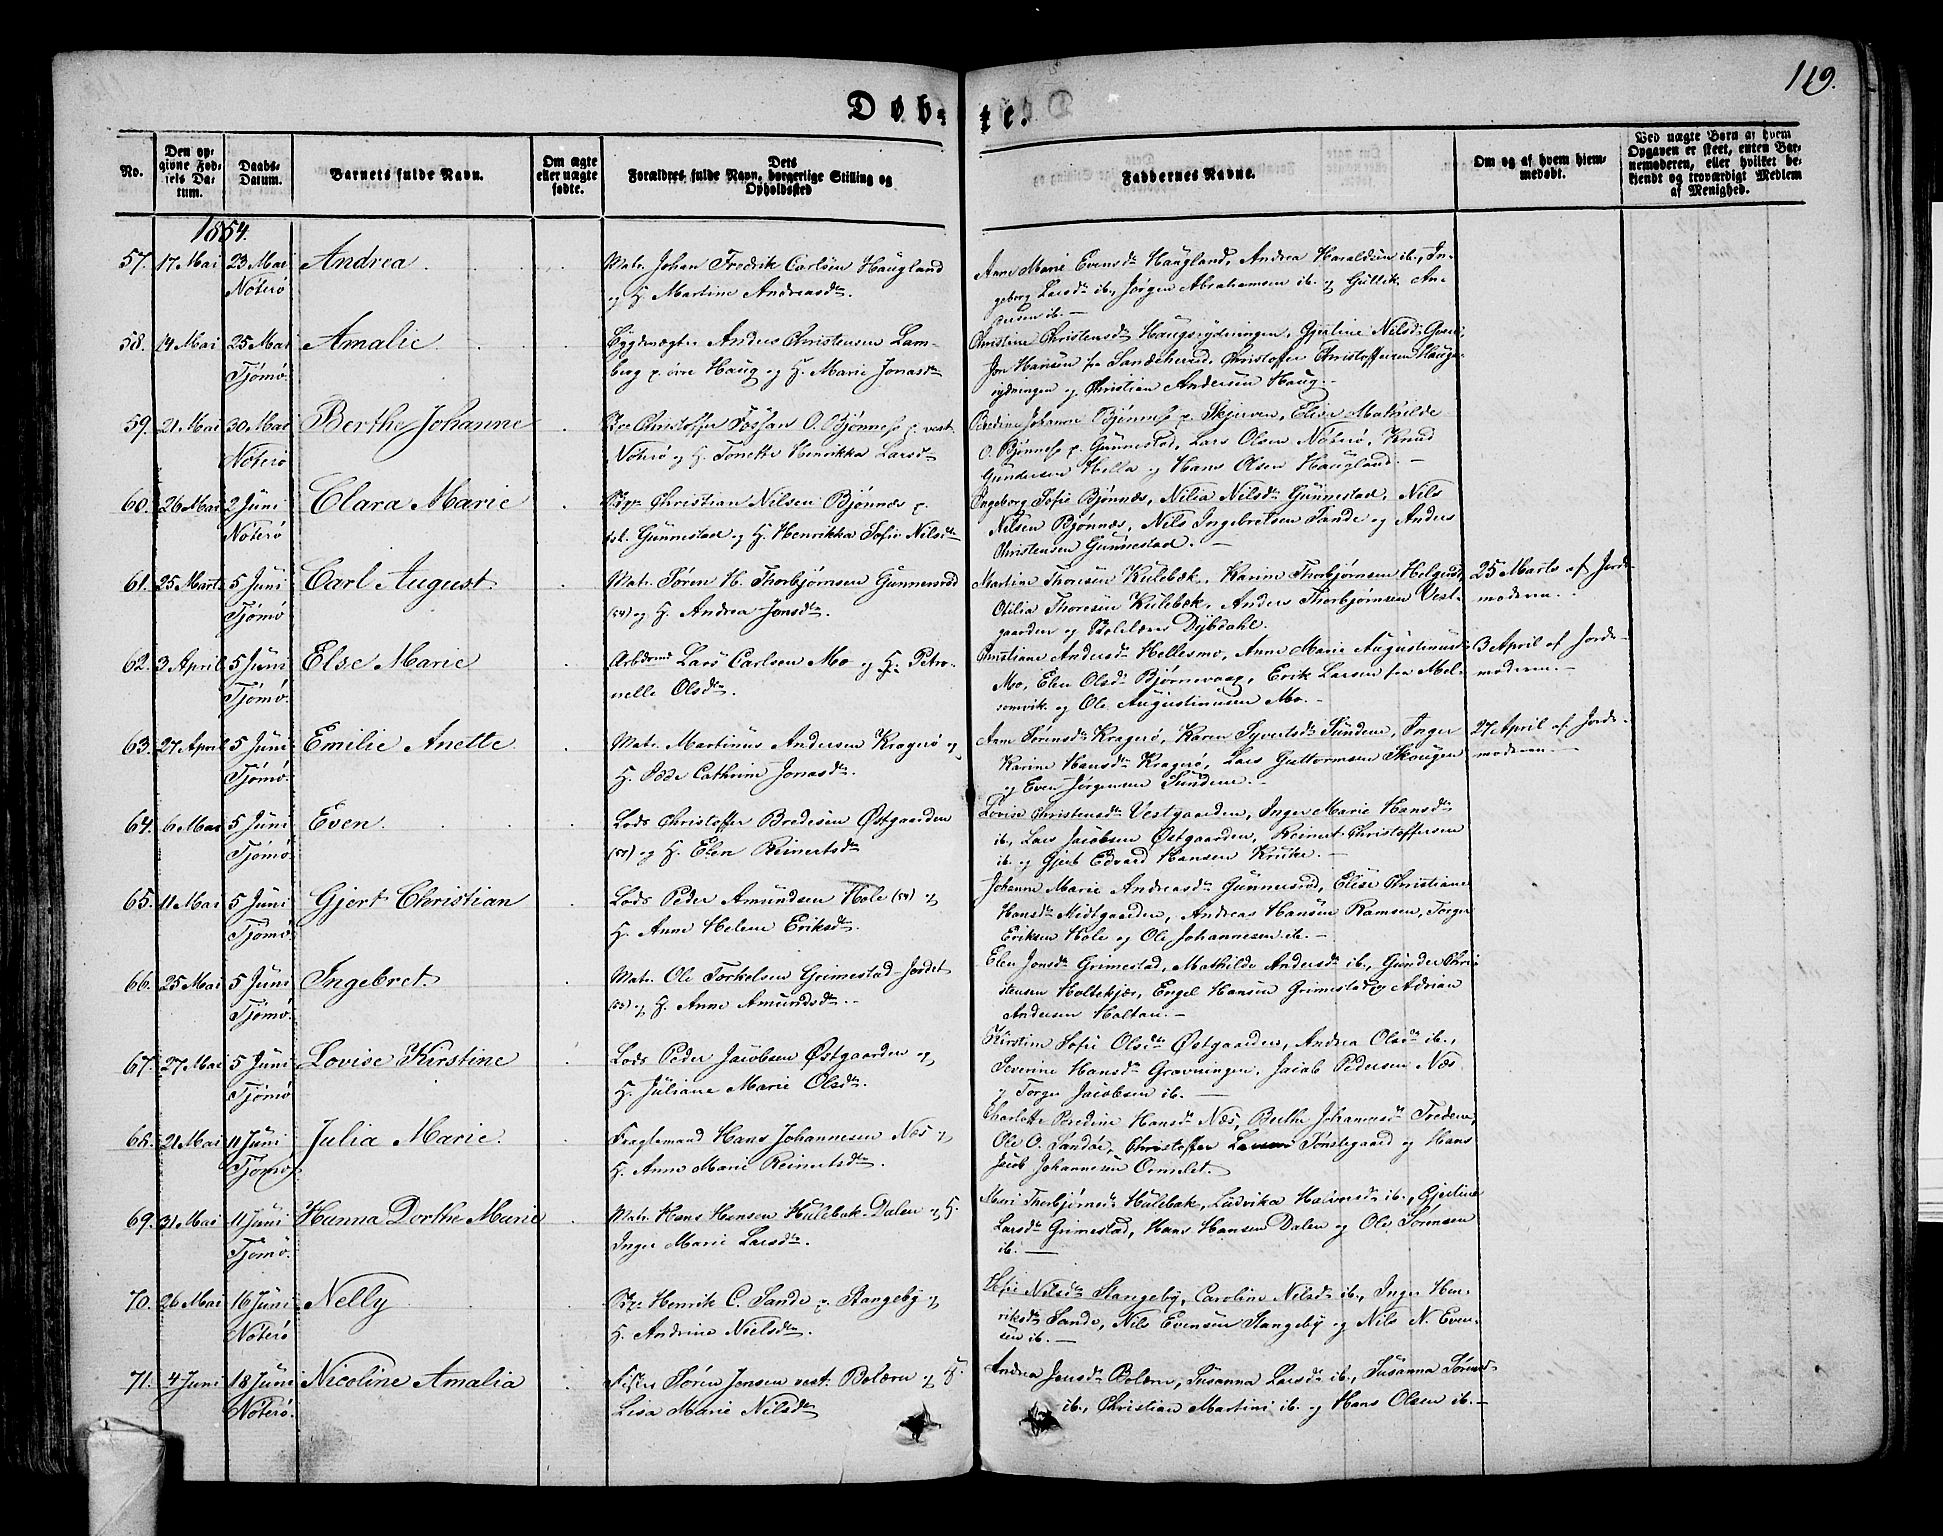 119.
Døbte.
No.
Den opgivne Fødsels Datum.
Daabs-Datum.
Barnets fulde Navn.
Om ægte eller uægte fødte.
Dets Forældres fulde Navn, borgerlige Stilling og Opholdssted
Faddernes Navne.
Om og af hvem hjemmedøbt.
Ved uægte Børn af hvem Opgaven er skeet, enten Barnemoderen, eller hvilket bekjendt og troværdigt Medlem af Menighed.
1854.
57. 17 Mai 23 Mai Nøterø Andrea
Matr. Johan Fredrik Carlsen Haugland
og H. Martine Andreasdtr.
Anne Marie Evensdtr Haugland, Andrea Haraldsen ib., In-
geborg Larsdtr ib., Jørgen Abrahamsen ib. og Guttik An-
dersen ib. —
58. 14 Mai 25 Mai Tjømø. Amalie
Bygdevægter Anders Christensen Lam-
berg p. øvre Haug og H. Marie Jonasdtr
Christine Christensdtr Haugsrydningen, Gjertine Nilsd:
Jon Hansen fra Sandeherred, Christoffer Christoffersen Haugs-
rydningen og Christian Andersen Haug. —
59. 21 Mai 30 Mai Nøterø Berthe Johanne
Christoffer Føssan O. Bjønnes p. vest.
Nøterø og H. Tonette Henrikka Larsdtr
Bredine Johanne Bjønnes p. Skjerven, Elisa Mathilde
O. Bjønnes p. Gunnestad, Lars Olsen Nøterø, Knud
Gundersen Hella og Hans Olsen Haugland. —
60. 26 Mai 2 Juni Nøterø Clara Marie
Christian Nilsen Bjønnæs p.
Gunnestad og H. Henrikka Sofie Nilsdtr
Ingeborg Sofie Bjønnæs, Nilia Nilsdtr Gunnestad, Nils
Nilsen Bjønnæs, Nils Ingebretsen Sande og Anders
Christensen Gunnestad. —
61. 25 Marts 5 Juni Tjømø Carl August.
Matr. Søren H. Thorbjørnsen Gunnersrød
og H. Andrea Jonsdtr.
Martine Thoresen Kulebæk, Karine Thorbjørnsen
Otilia Thoresen Kulebæk, Anders Thorbjørnsen Vest-
gaarden og Skolelærer Dybdahl.
25 Marts af Jorde-
moderen.
62. 3 April 5 Juni Tjømø. Else Marie
Arbdsmd Lars Carlsen Mo og H. Petro-
nelle Olsdtr.
Christiane Andersdtr Hellesmo, Anne Marie Augustinusd
Mo, Elen Olsdtr Bjørnevaag, Erik Larsen fra Mel-
somvik og Ole Augustinusen Mo. —
3 April af Jorde-
moderen. —
63. 27 April 5 Juni Tjømø. Emilie Anette
Matr. Martinus Andersen Kragerø og
H. Inde Cathrine Jonasdtr.
Anne Sørensdtr Kragerø, Karen Syvertsdtr Sundene, Inger
Karine Hansdtr Kragerø, Lars Guttormsen Skougen
og Even Jørgensen Sundene. —
27 April af Jorde-
moderen. —
64. 6 Mai 5 Juni Tjømø. Even.
Lods Christoffer Bredesen Østgaarden
og H. Elen Reinertsdtr
Lovise Christensdtr Vestgaarden, Inger Marie Hansdtr
ib., Lars Jacobsen Østgaarden, Reinert Christoffersen
ib. og Gjert Edvard Hansen Kruke. —
65. 11 Mai 5 Juni Tjømø. Gjert Christian
Lods Peder Amundsen Hole og
H. Anne Helene Eriksdtr.
Johanne Marie Andreasdtr Gunnersrød, Elise Christiane
Hansdtr Midtgaarden, Andreas Hansen Ramsen, Torger
Eriksen Hole og Ole Johannesen ib. —
66. 25 Mai 5 Juni Tjømø. Ingebret.
Matr. Ole Torkelsen Grimestad-Jordet
og H. Anne Amundsdtr. —
Elen Jonsdtr Grimestad, Mathilde Andersdtr ib., Gunder Chri-
stensen Holtekjær, Engel Hansen Grimestad og Adrian
Andersen Holtan. —
67. 27 Mai 5 Juni Tjømø Lovise Kirstine
Lods Peder Jacobsen Østgaarden og
H. Juliane Marie Olsdtr.
Kirstine Sofie Olsdtr Østgaarden, Andrea Olsdtr ib.,
Severine Hansdtr Gravningen, Jacob Pedersen Næs
og Torger Jacobsen ib. —
68. 21 Mai 11 Juni Tjømø. Julia Marie.
Fraglemand Hans Johannesen Næs og
H. Anne Marie Reinertsdtr.
Charlotte Bredine Hansdtr Næs, Berthe Johannesdtr Fredene,
Ole O. Sandøe, Christoffer Larsen Tønstegaard og Hans
Jacob Johannesen Ormelet. —
69. 31 Mai 11 Juni Tjømø. Hanna Dorthe Marie
Matr. Hans Hansen Hulebak-Dalen og H.
Inger Marie Larsdtr.
Mari Thorbjørnsdtr Hulebak, Ludvika Halvorsdtr ib., Gjertine
Larsdtr Grimestad, Hans Hansen Dalen og Ole Sørensen
ib. —
70. 26 Mai 16 Juni Nøterø Nelly
Henrik C. Sande p. Stangeby og
H. Andrine Nielsdtr.
Sofie Nilsdtr Stangeby, Caroline Nilsdtr ib., Inger Hen-
riksdtr Sande, Nils Evensen Stangeby og Nils N. Even-
sen ib. —
71. 4 Juni 18 Juni Nøterø. Nicoline Amalia
Fisker Søren Jensen vest. Bolærn og H.
Lisa Marie Nilsdtr
Andrea Jensdtr Bolærn, Susanna Larsdtr ib., Susanna Sørensd
ib., Christian Martini ib. og Hans Olsen ib. —